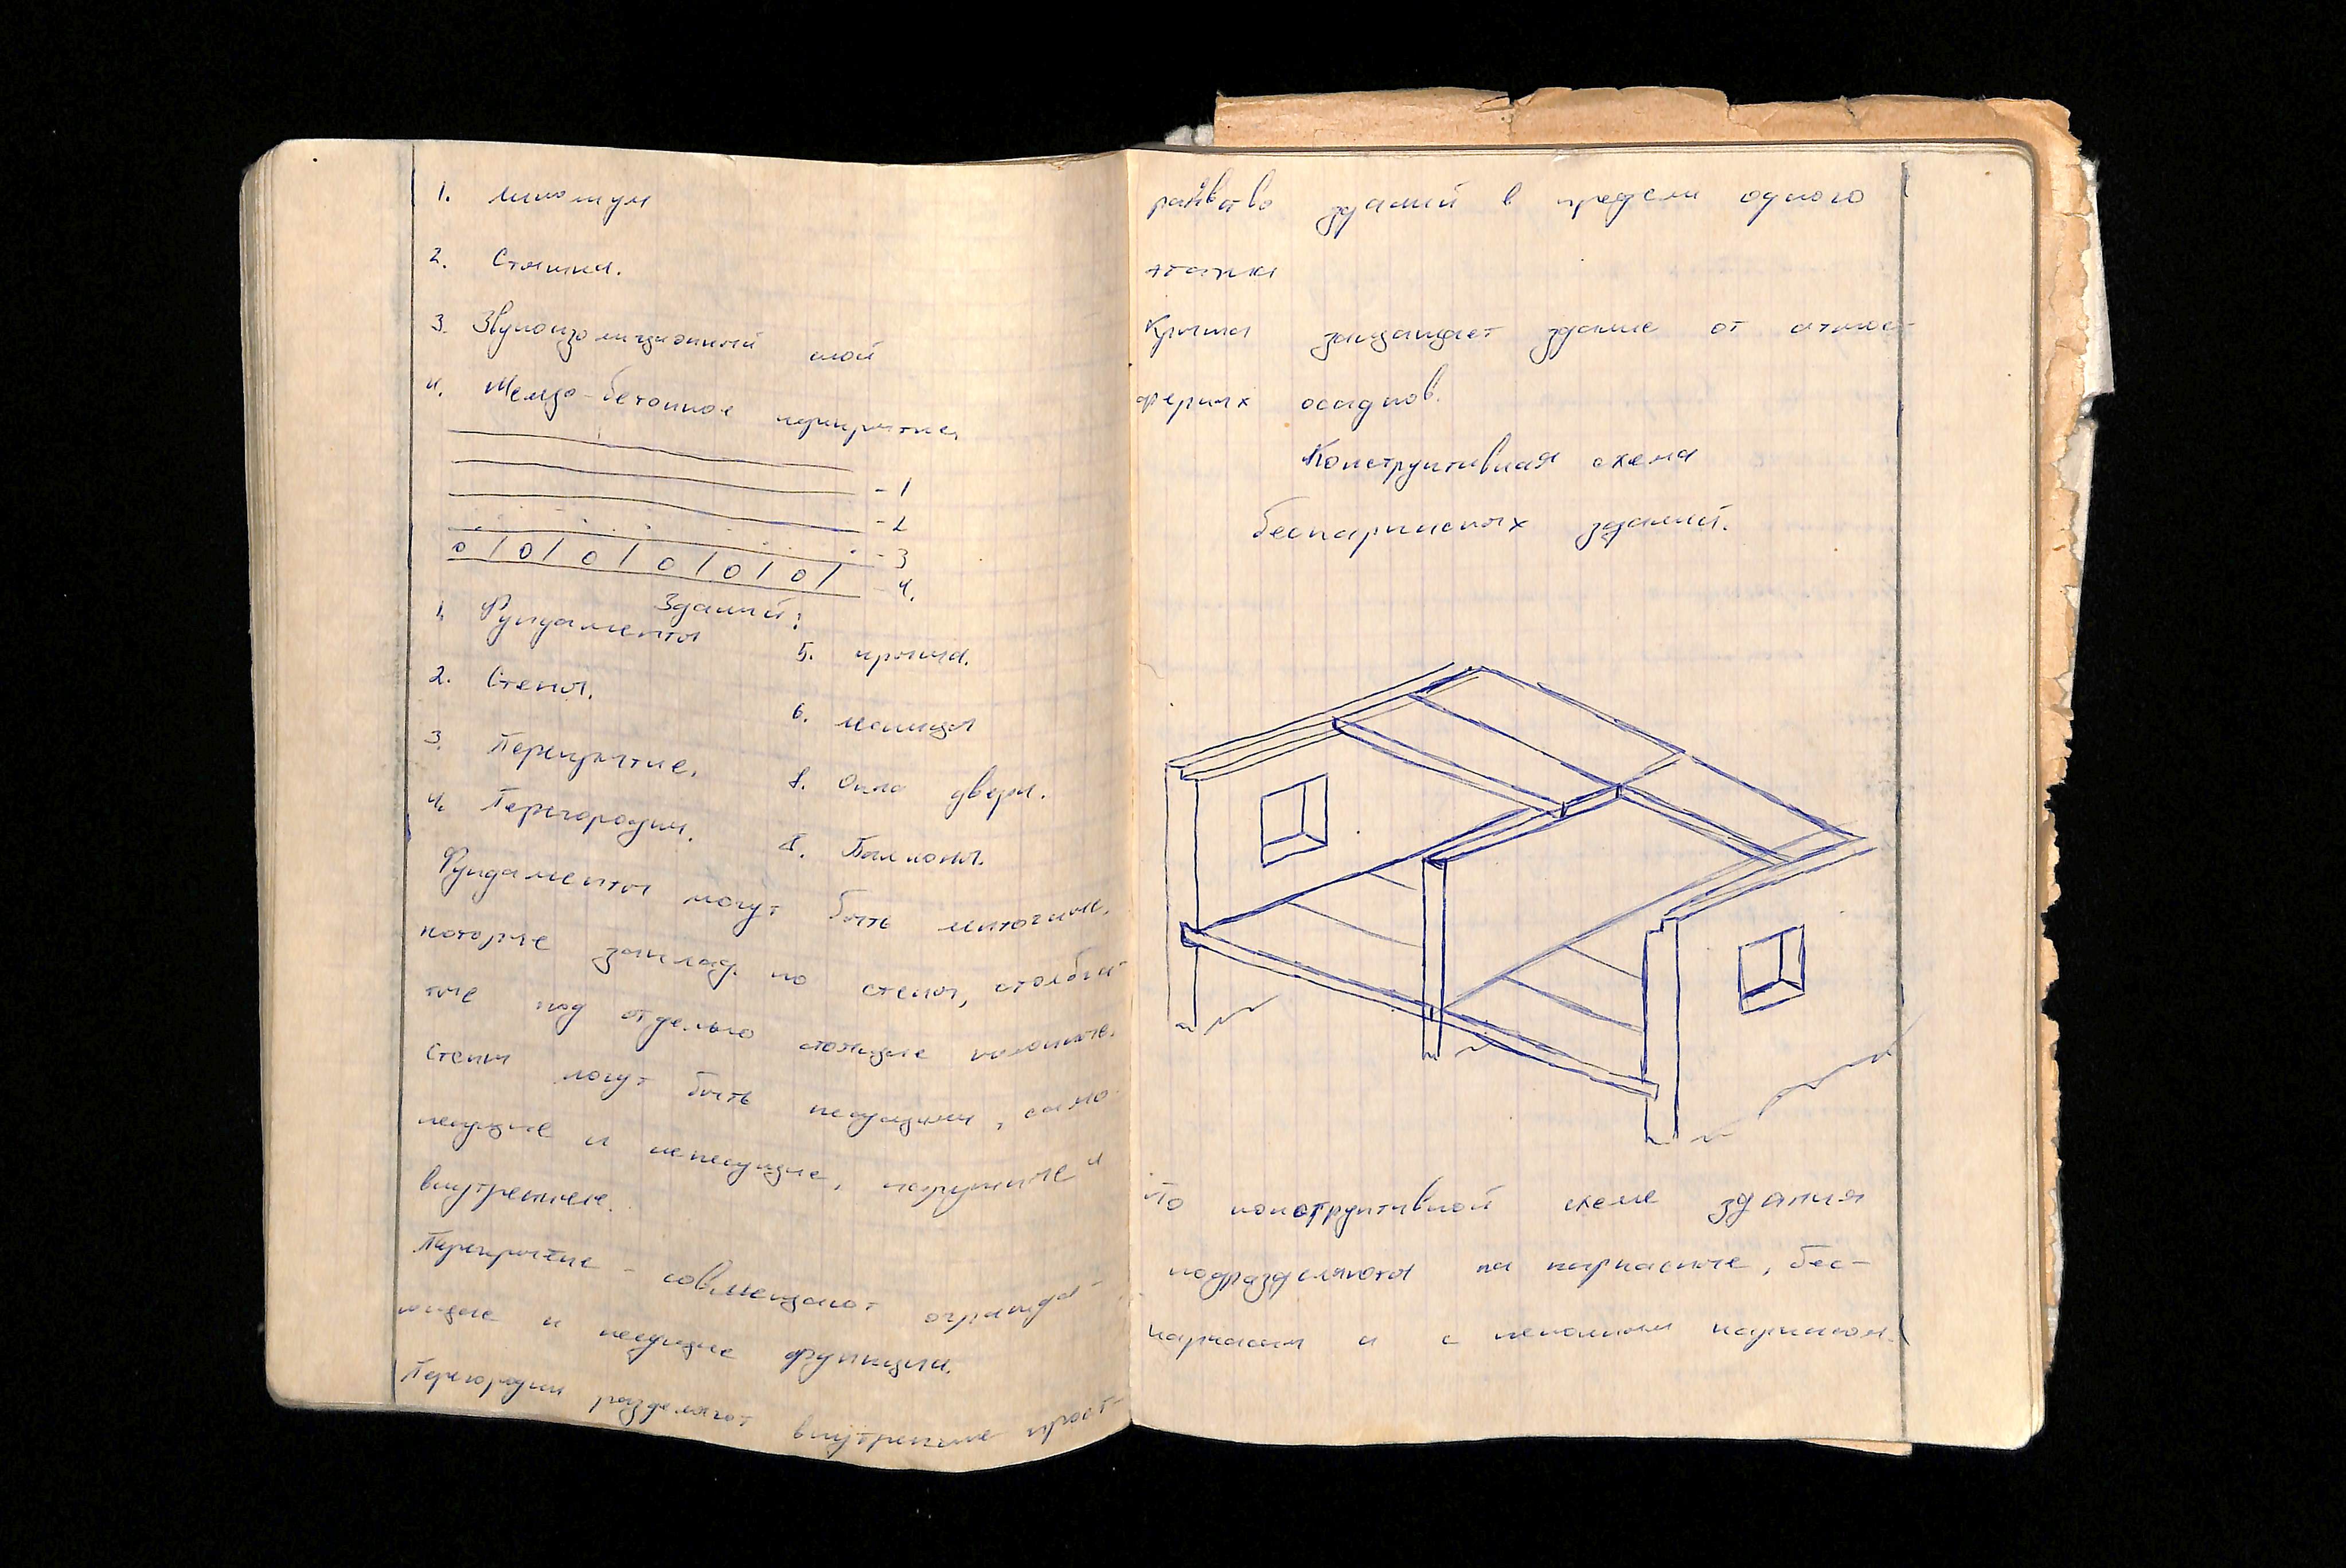 1. Линолиум
2. Стяшка.
3. Звукоизоляционный слой
4. Железо-бетонное перекрытие.
-1
-2
-3
-4.
Зданий:
1. Фундаменты
2. Стены.
3. Перекрытие.
4. Перегородки.
5. крыша.
6. лестницы
8. Окно двери.
8. Балконы.
Фундаменты могут быть ленточные,
которые заклад. по стены, столбча-
тые под отдельно стоящие колонны.
Стены могут быть несущими, само-
несущие и ненесущие, наружные и
внутренние.
Перекрытие - совмещают огражда-
ющие и несущие функции.
Перегородки разделяют внутренние прост-
ранство зданий в пределы одного
этажа
Крыша защищает здание от атмос-
ферных осадков.
Конструктивная схема
бескаркасных зданий.
По конструктивной схеме здания
подразделяются на каркасные, бес-
каркасны и с неполным каркасом.